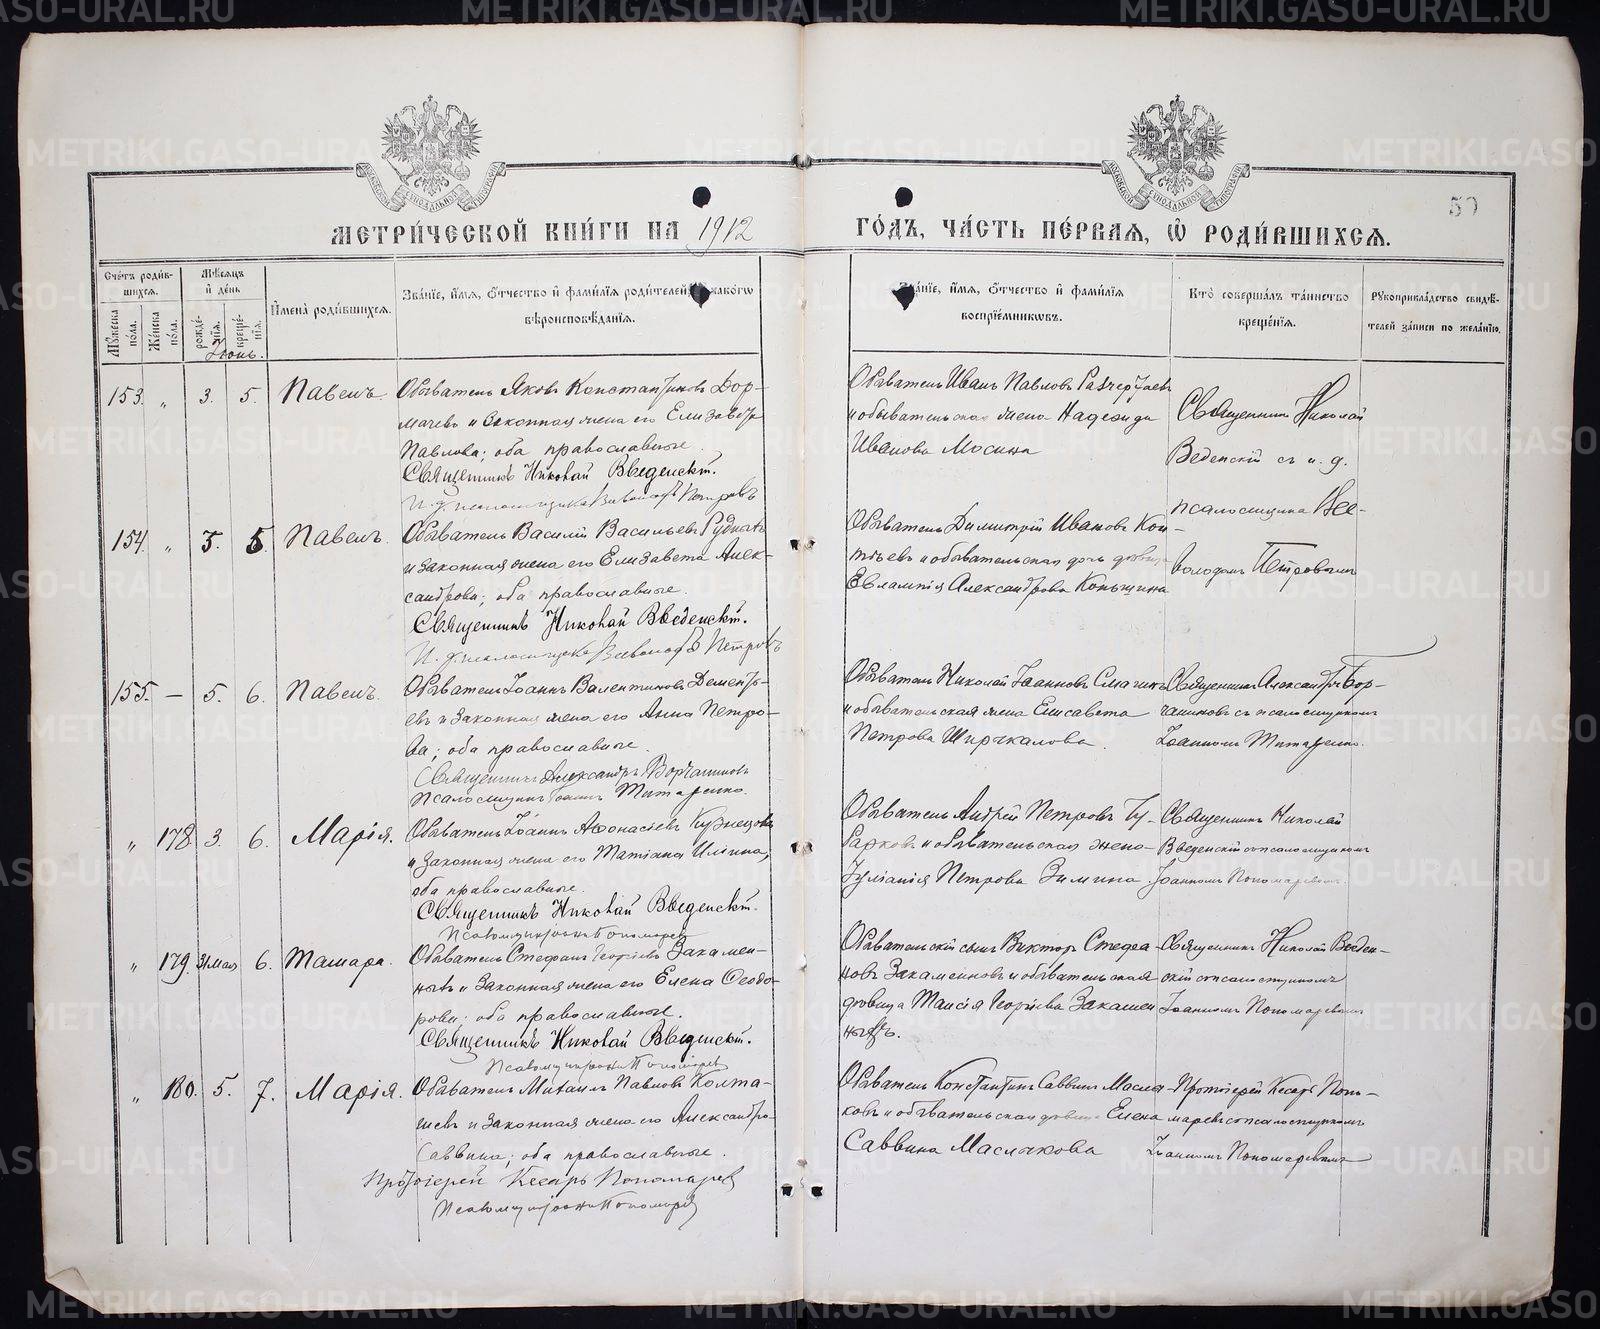 METRIKI.GASO-URAL.RU
МЕТРИ́ЧЕСКОЙ КНИ́ГИ НА 1912
ГО́ДЪ, ЧА́СТЬ ПЕ́РВАЯ, Ѡ РОДИ́ВШИХСЯ.
50
Сче́тъ роди́в-
шихся.
Мꙋ́жеска
по́ла.
Же́нска
по́ла.
Мѣ́сяцъ
и де́нь
рожде́-
нїя.
креще́-
нїя.
Іюнь.
Имена̀ роди́вшихся.
Зва́нїе, и́мя, ѻ́тчество и фами́лїя роди́телей, како́гѡ
вѣроисповѣ́данїя.
Зва́нїе, и́мя, ѻ́тчество и фами́лїя
воспрїе́мникѡвъ.
Кто̀ соверша́лъ та́инство
креще́нїя.
Рꙋкоприкла́дство свидѣ́-
телей за́писи по жела́нїю.
153. „ 3. 5. Павелъ.
Обыватель Яковъ Константиновъ Дор-
мачевъ и законная жена его Елизавета
Павлова; оба православные.
Священникъ Николай Введенскій.
И. д. псаломщика Всеволодъ Петровъ
Обыватель Иванъ Павловъ
и обывательская жена Надежда
Иванова Мосина
Священникъ Николай
Веденскій съ и. д.
псаломщика Все-
володомъ Петровымъ
154. „ 3. 5. Павелъ.
Обыватель Василій Васильевъ
и законная жена его Елизавета Алек-
сандрова; оба православные.
Священникъ Николай Введенскій.
И. д. псаломщика Всеволодъ Петровъ
Обыватель Димитрій Ивановъ Коп-
тѣевъ и обывательская дочь девица
Евлампія Александрова Коньшина
155. — 5. 6. Павелъ.
Обыватель Іоаннъ Валентиновъ Дементь-
евъ и законная жена его Анна Петро-
ва; оба православные.
Священникъ Александръ Борчаниновъ
Псаломщикъ Іоаннъ Титаренко.
Обыватель Николай Іоанновъ
и обывательская жена Елисавета
Петрова Ширыкалова.
Священникъ Александръ Бор-
чаниновъ съ псаломщикомъ
Іоанномъ Титаренко.
„ 178 3. 6. Марія.
Обыватель Іоаннъ Аѳонасіевъ Кузнецовъ
и законная жена его Татіана Ильина,
оба православные.
Священникъ Николай Введенскій.
Псаломщикъ Іоаннъ Пономаревъ
Обыватель Андрей Петровъ Бу-
харковъ и обывательская жена
Іуліанія Петрова Зимина
Священникъ Николай
Введенскій съ псаломщикомъ
Іоанномъ Пономаревымъ.
„ 179. 31 мая 6. Тамара.
Обыватель Стефанъ Георгіевъ Закамен-
ныхъ и законная жена его Елена Ѳеодо-
рова; оба православные.
Священникъ Николай Введенскій.
Псаломщикъ Іоаннъ Пономаревъ
Обывательскій сынъ Викторъ Стефа-
новъ и обывательская
девица Таисія Георгіева Закамен
ныхъ.
Священникъ Николай Веден-
скій съ псаломщикомъ
Іоанномъ Пономаревымъ
„ 180. 5. 7. Марія.
Обыватель Михаилъ Павловъ Колта-
шевъ и законная жена его Александра
Саввина; оба православные.
Протоіерей Кесарь Пономаревъ
Псаломщикъ Іоаннъ Пономаревъ
Обыватель Константинъ Саввинъ Масля-
ковъ и обывательская девица Елена
Саввина Маслыкова
Протоіерей Кесарь Поно-
маревъ съ псаломщикомъ
Іоанномъ Пономаревымъ